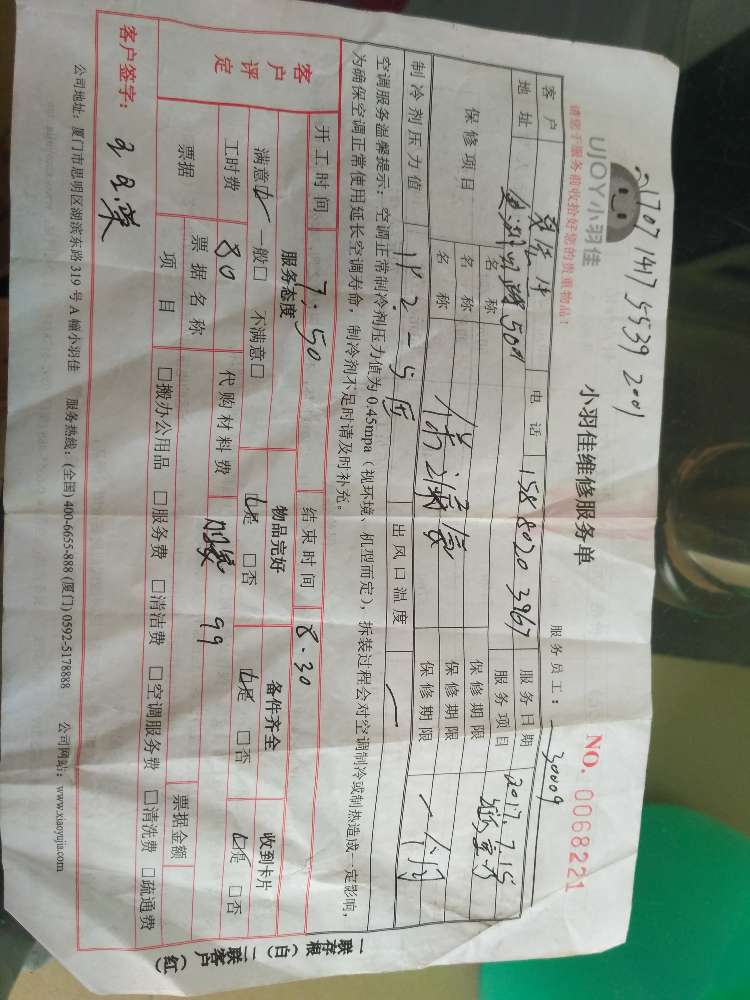 1707 1417 5539 201
UJOY小羽佳
小羽佳维修服务单
NO. 0068221
请您于服务前收拾好您的贵重物品!
服务员工: 30009
客户
电话 158 8020 3967
服务日期 2017.7.15
地址
服务项目
保修项目
名称
保修期限
名称
保修期限
名称
保修期限 一个月
制冷剂压力值
出风口温度
空调服务温馨提示: 空调正常制冷剂压力值为 0.45mpa (视环境、机型而定), 拆装过程会对空调制冷或制热造成一定影响,
为确保空调正常使用延长空调寿命, 制冷剂不足时请及时补充。
开工时间 7:50
结束时间 8-30
客户评定
服务态度
物品完好
备件齐全
收到卡片
满意□ 一般□ 不满意□
□是 □否
□是 □否
□是 □否
工时费 80
代购材料费 99
票据
票据名称
票据金额
项目
□搬办公用品 □服务费 □清洁费 □空调服务费 □清洗费 □疏通费
客户签字:
公司地址: 厦门市思明区湖滨东路 319 号 A 幢小羽佳 服务热线: (全国) 400-6655-888 (厦门) 0592-5178888 公司网站: www.xiaoyujia.com
一联存根 (白) 二联客户 (红)